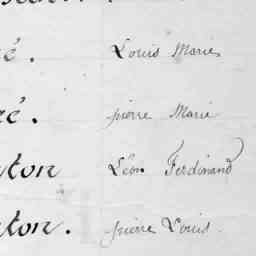 é. Louis Marie
é. pierre Marie
ton Léon Ferdinand
ton. pierre Louis.